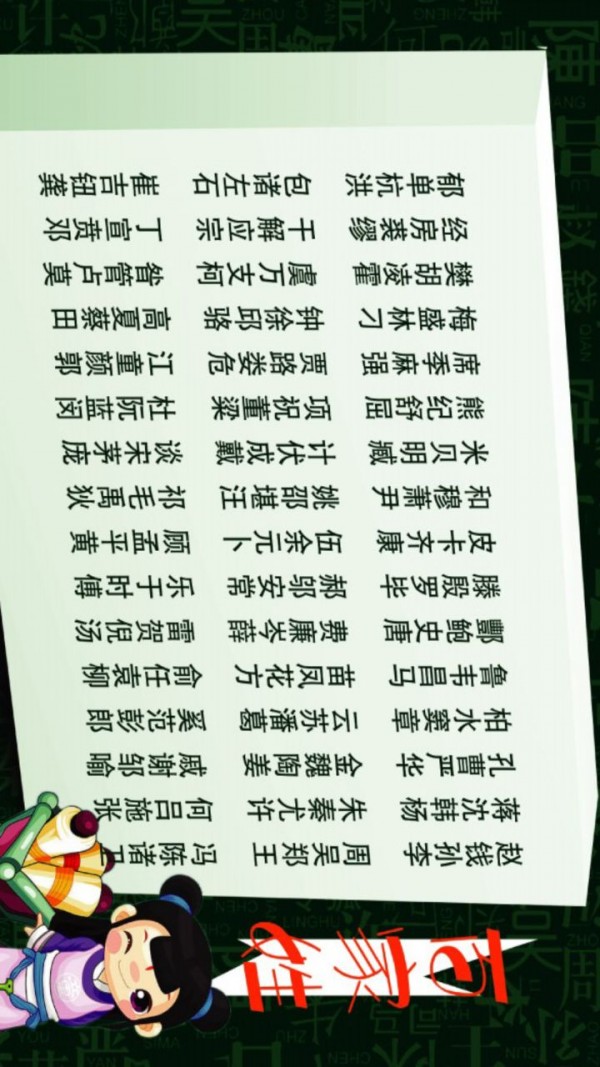 百家姓
赵钱孙李 周吴郑王 冯陈诸卫
蒋沈韩杨 朱秦尤许 何吕施张
孔曹严华 金魏陶姜 戚谢邹喻
柏水窦章 云苏潘葛 奚范彭郎
鲁韦昌马 苗凤花方 俞任袁柳
酆鲍史唐 费廉岑薛 雷贺倪汤
滕殷罗毕 郝邬安常 乐于时傅
皮卡齐康 伍余元卜 顾孟平黄
和穆萧尹 姚邵堪汪 祁毛禹狄
米贝明臧 计伏成戴 谈宋茅庞
熊纪舒屈 项祝董梁 杜阮蓝闵
席季麻强 贾路娄危 江童颜郭
梅盛林刁 钟徐邱骆 高夏蔡田
樊胡凌霍 虞万支柯 昝管卢莫
经房裘缪 干解应宗 丁宣贲邓
郁单杭洪 包诸左石 崔吉钮龚